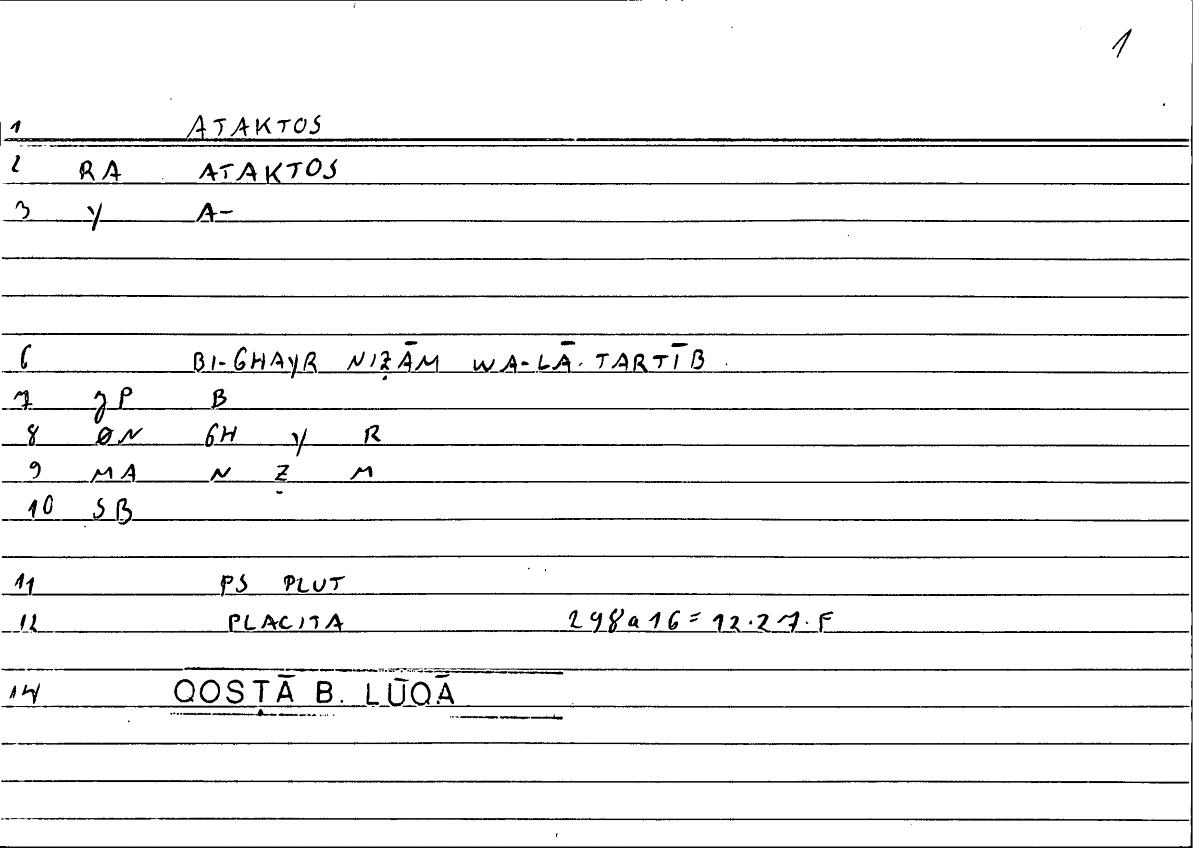 1
1 ATAKTOS
2 RA ATAKTOS
3 Y A-
6 BI-GHAYR NIẒĀM WA-LĀ-TARTĪB
7 JP B
8 ØN GH Y R
9 MA N Ẓ M
10 SB
11 PS PLUT
12 PLACITA 298a16=12.27.F
14 QOSṬĀ B. LŪQĀ